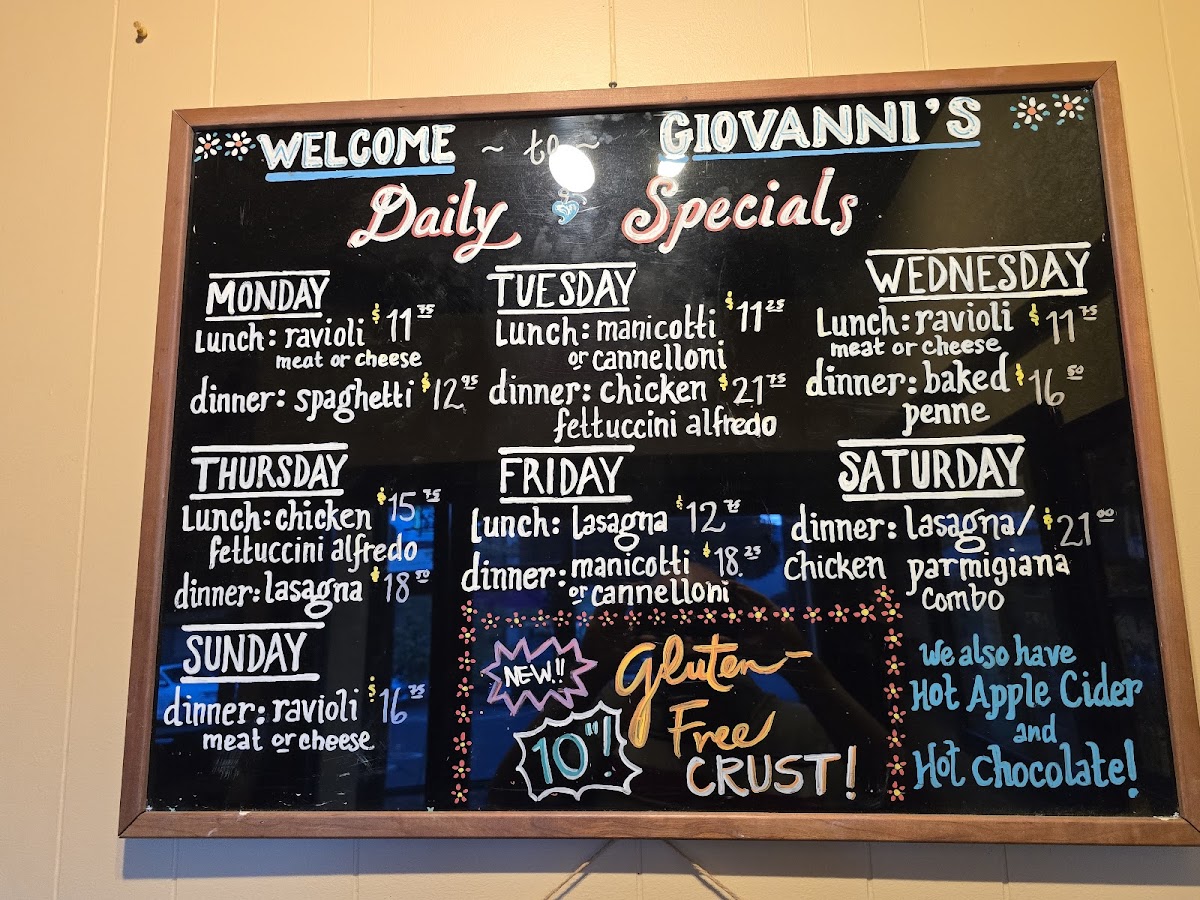 WELCOME ~ to ~ GIOVANNI'S
Daily Specials
MONDAY
Lunch: ravioli $11.75
meat or cheese
dinner: spaghetti $12.95
TUESDAY
Lunch: manicotti $11.25
or cannelloni
dinner: chicken $21.75
fettuccini alfredo
WEDNESDAY
Lunch: ravioli $11.75
meat or cheese
dinner: baked $16.50
penne
THURSDAY
Lunch: chicken $15.75
fettuccini alfredo
dinner: lasagna $18.50
FRIDAY
lunch: lasagna $12.75
dinner: manicotti $18.25
or cannelloni
SATURDAY
dinner: lasagna/ $21.00
chicken parmigiana
combo
SUNDAY
dinner: ravioli $16.75
meat or cheese
NEW!!
10"!
Gluten-
Free
CRUST!
we also have
Hot Apple Cider
and
Hot chocolate!